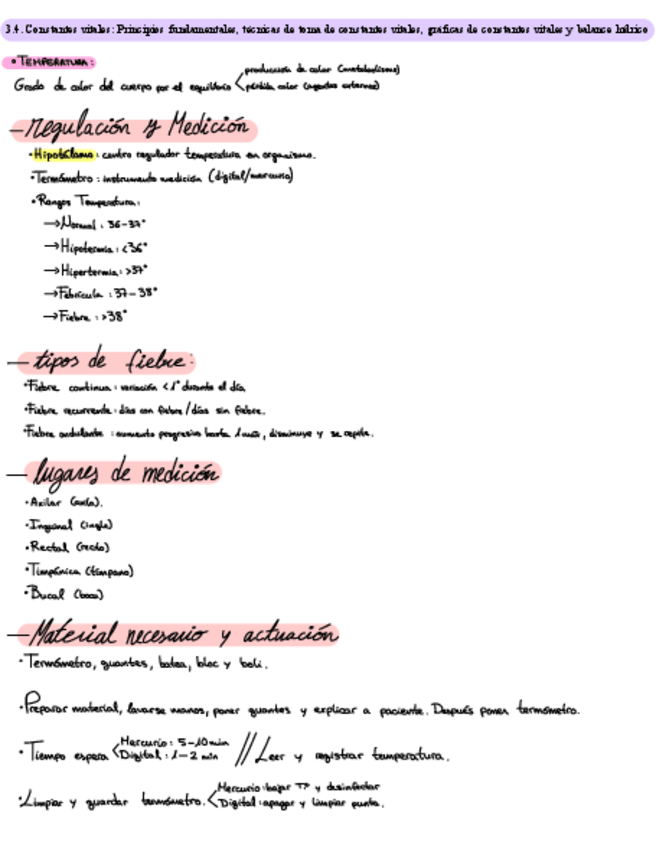 3.4. Constantes vitales: Principios fundamentales, técnicas de toma de constantes vitales, gráficas de constantes vitales y balance hídrico
• TEMPERATURA:
Grado de calor del cuerpo por el equilibrio < producción de calor (metabolismo)
pérdida calor (agentes externos)
— regulación y Medición
• Hipotálamo: centro regulador temperatura en organismo.
• Termómetro: instrumento medición (digital/mercurio)
• Rangos Temperatura:
→ Normal: 36-37°
→ Hipotermia: <36°
→ Hipertermia: >37°
→ Febrícula: 37-38°
→ Fiebre: >38°
— tipos de fiebre:
• Fiebre continua: variación <1° durante el día
• Fiebre recurrente: días con fiebre/días sin fiebre.
• Fiebre ondulante: aumento progresivo hasta 1 máx, disminuye y se repite.
— lugares de medición
• Axilar (axila).
• Inguinal (ingle)
• Rectal (recto)
• Timpánica (tímpano)
• Bucal (boca)
— Material necesario y actuación
• Termómetro, guantes, batea, bloc y boli.
• Preparar material, lavarse manos, poner guantes y explicar a paciente. Después poner termómetro.
• Tiempo espera < Mercurio: 5-10 min
Digital: 1-2 min // Leer y registrar temperatura.
• Limpiar y guardar termómetro. < Mercurio: bajar Tª y desinfectar
Digital: apagar y limpiar punta.